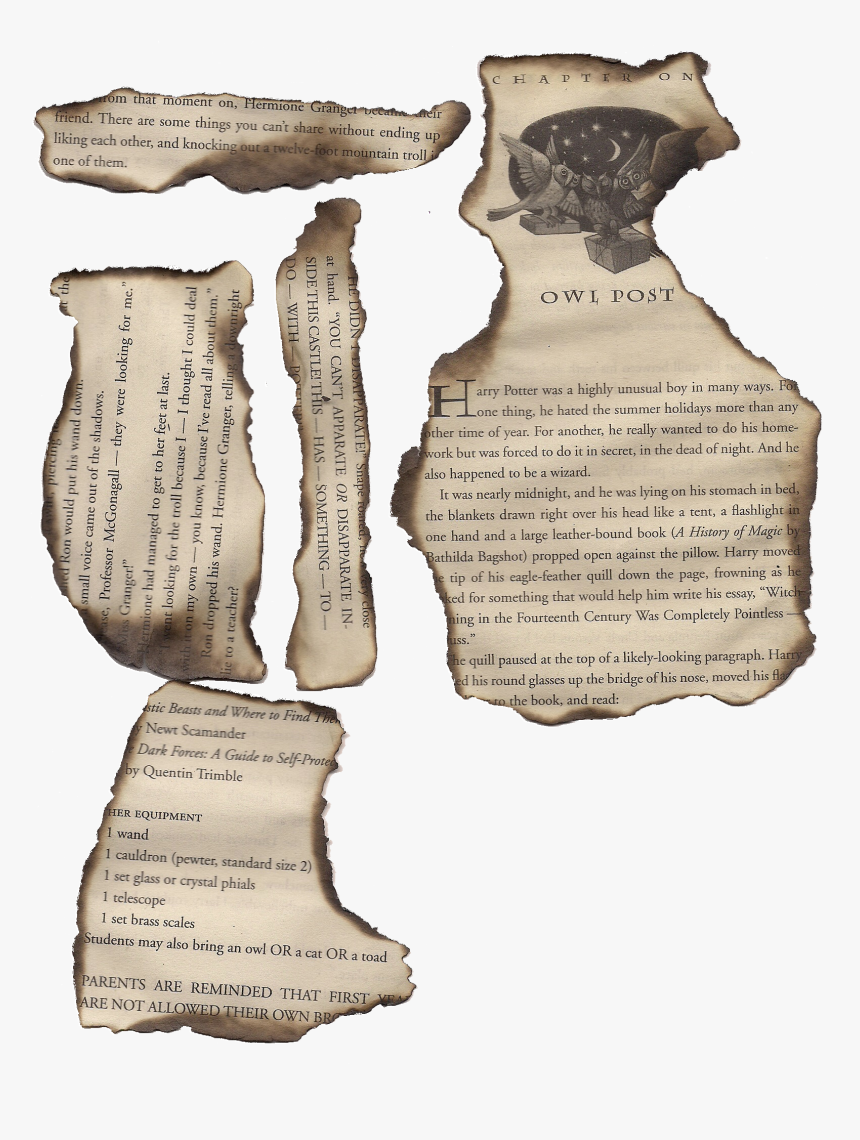 from that moment on, Hermione Granger became their
friend. There are some things you can't share without ending up
liking each other, and knocking out a twelve-foot mountain troll
one of them.
CHAPTER ON
OWL POST
Harry Potter was a highly unusual boy in many ways. For
one thing, he hated the summer holidays more than any
other time of year. For another, he really wanted to do his home-
work but was forced to do it in secret, in the dead of night. And he
also happened to be a wizard.
It was nearly midnight, and he was lying on his stomach in bed,
the blankets drawn right over his head like a tent, a flashlight in
one hand and a large leather-bound book (A History of Magic by
Bathilda Bagshot) propped open against the pillow. Harry moved
tip of his eagle-feather quill down the page, frowning as he
ked for something that would help him write his essay, “Witch
ning in the Fourteenth Century Was Completely Pointless —
uss.”
he quill paused at the top of a likely-looking paragraph. Harry
ed his round glasses up the bridge of his nose, moved his fla
to the book, and read:
t the
piercing
Ron would put his wand down.
small voice came out of the shadows.
se, Professor McGonagall — they were looking for me.”
Miss Granger!”
Hermione had managed to get to her feet at last.
I went looking for the troll because I — I thought I could deal
with it on my own — you know, because I've read all about them.”
Ron dropped his wand. Hermione Granger, telling a downright
lie to a teacher?
HE DIDN'T DISAPPARATE!” Snape roared, close
at hand. “YOU CAN'T APPARATE OR DISAPPARATE IN-
SIDE THIS CASTLE! THIS — HAS — SOMETHING — TO —
DO — WITH —
stic Beasts and Where to Find The
y Newt Scamander
Dark Forces: A Guide to Self-Protec
by Quentin Trimble
HER EQUIPMENT
1 wand
1 cauldron (pewter, standard size 2)
1 set glass or crystal phials
1 telescope
1 set brass scales
Students may also bring an owl OR a cat OR a toad
PARENTS ARE REMINDED THAT FIRST YEA
ARE NOT ALLOWED THEIR OWN BR